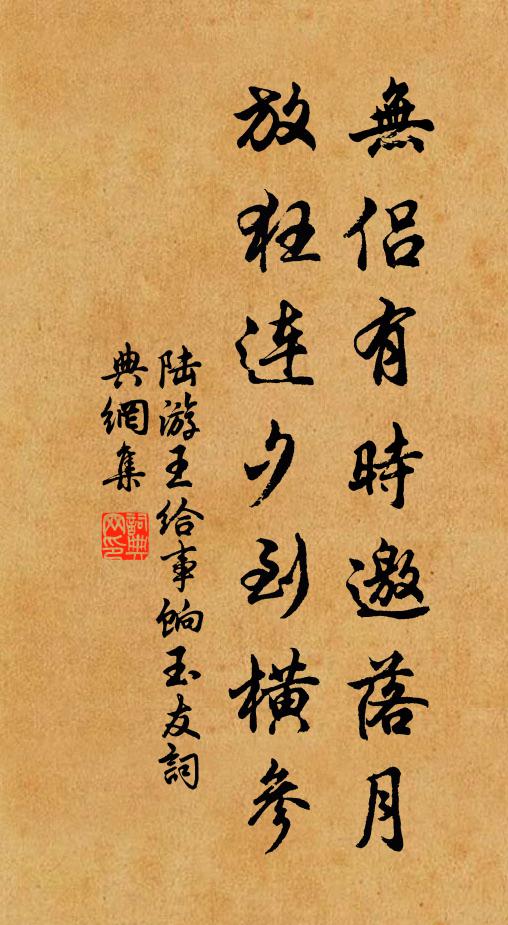 無侶有時邀落月
放狂連夕到橫參
陸游王給事餉玉友詞
典網集
詞典網印